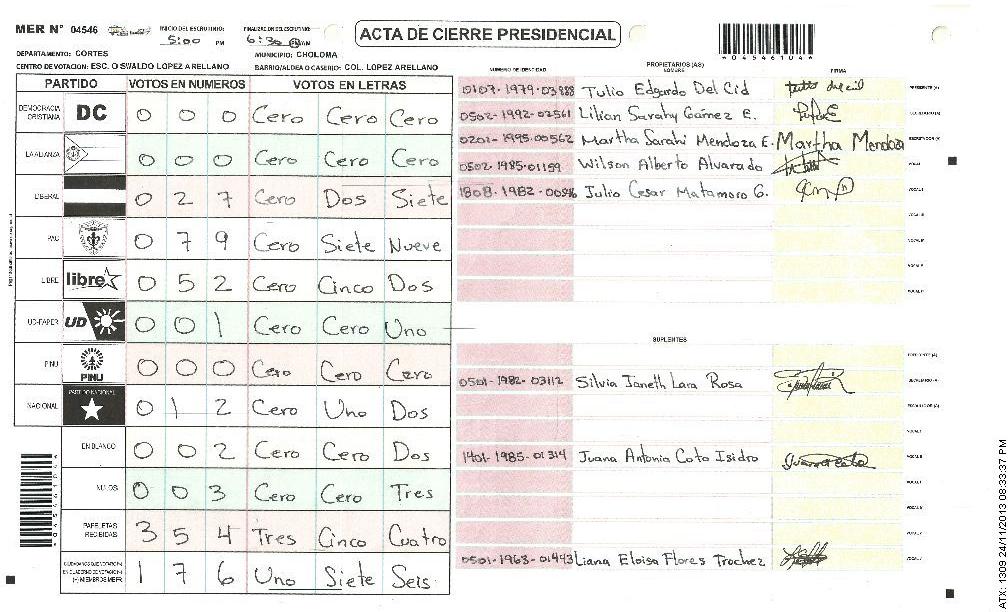 MER N° 04546
INICIO DEL ESCRUTINIO:
5:00 PM
FINALIZACION DEL ESCRUTINIO:
6:30 PM/AM
ACTA DE CIERRE PRESIDENCIAL
*04546104*
DEPARTAMENTO: CORTES
MUNICIPIO: CHOLOMA
CENTRO DE VOTACION: ESC. OSWALDO LOPEZ ARELLANO
BARRIO/ALDEA O CASERIO: COL. LOPEZ ARELLANO
PARTIDO VOTOS EN NUMEROS VOTOS EN LETRAS
DEMOCRACIA CRISTIANA DC 0 0 0 Cero Cero Cero
LA ALIANZA 0 0 0 Cero Cero Cero
LIBERAL 0 2 7 Cero Dos Siete
PAC 0 7 9 Cero Siete Nueve
LIBRE libre 0 5 2 Cero Cinco Dos
UD-FAPER UD 0 0 1 Cero Cero Uno
PINU PINU 0 0 0 Cero Cero Cero
NACIONAL PARTIDO NACIONAL 0 1 2 Cero Uno Dos
EN BLANCO 0 0 2 Cero Cero Dos
NULOS 0 0 3 Cero Cero Tres
PAPELETAS RECIBIDAS 3 5 4 Tres Cinco Cuatro
CIUDADANOS QUE VOTARON EN CUADERNO DE VOTACION (+) MIEMBROS MER 1 7 6 Uno Siete Seis
NUMERO DE IDENTIDAD
PROPIETARIOS (AS)
NOMBRE
FIRMA
0107-1979-03888 Tulio Edgardo Del Cid PRESIDENTE (A)
0502-1992-02561 Lilian Sarahy Gámez E. SECRETARIO (A)
0201-1995-00562 Martha Sarahi Mendoza E. Martha Mendoza ESCRUTADOR (A)
0502-1985-01159 Wilson Alberto Alvarado VOCAL I
1808-1982-00596 Julio Cesar Matamoro G.
SUPLENTES
PRESIDENTE (A)
0501-1982-03112 Silvia Janeth Lara Rosa SECRETARIO (A)
ESCRUTADOR (A)
1401-1985-01314 Juana Antonia Coto Isidro
0501-1963-01493 Liana Eloisa Flores Trochez
ATX: 1309 24/11/2013 08:33:37 PM